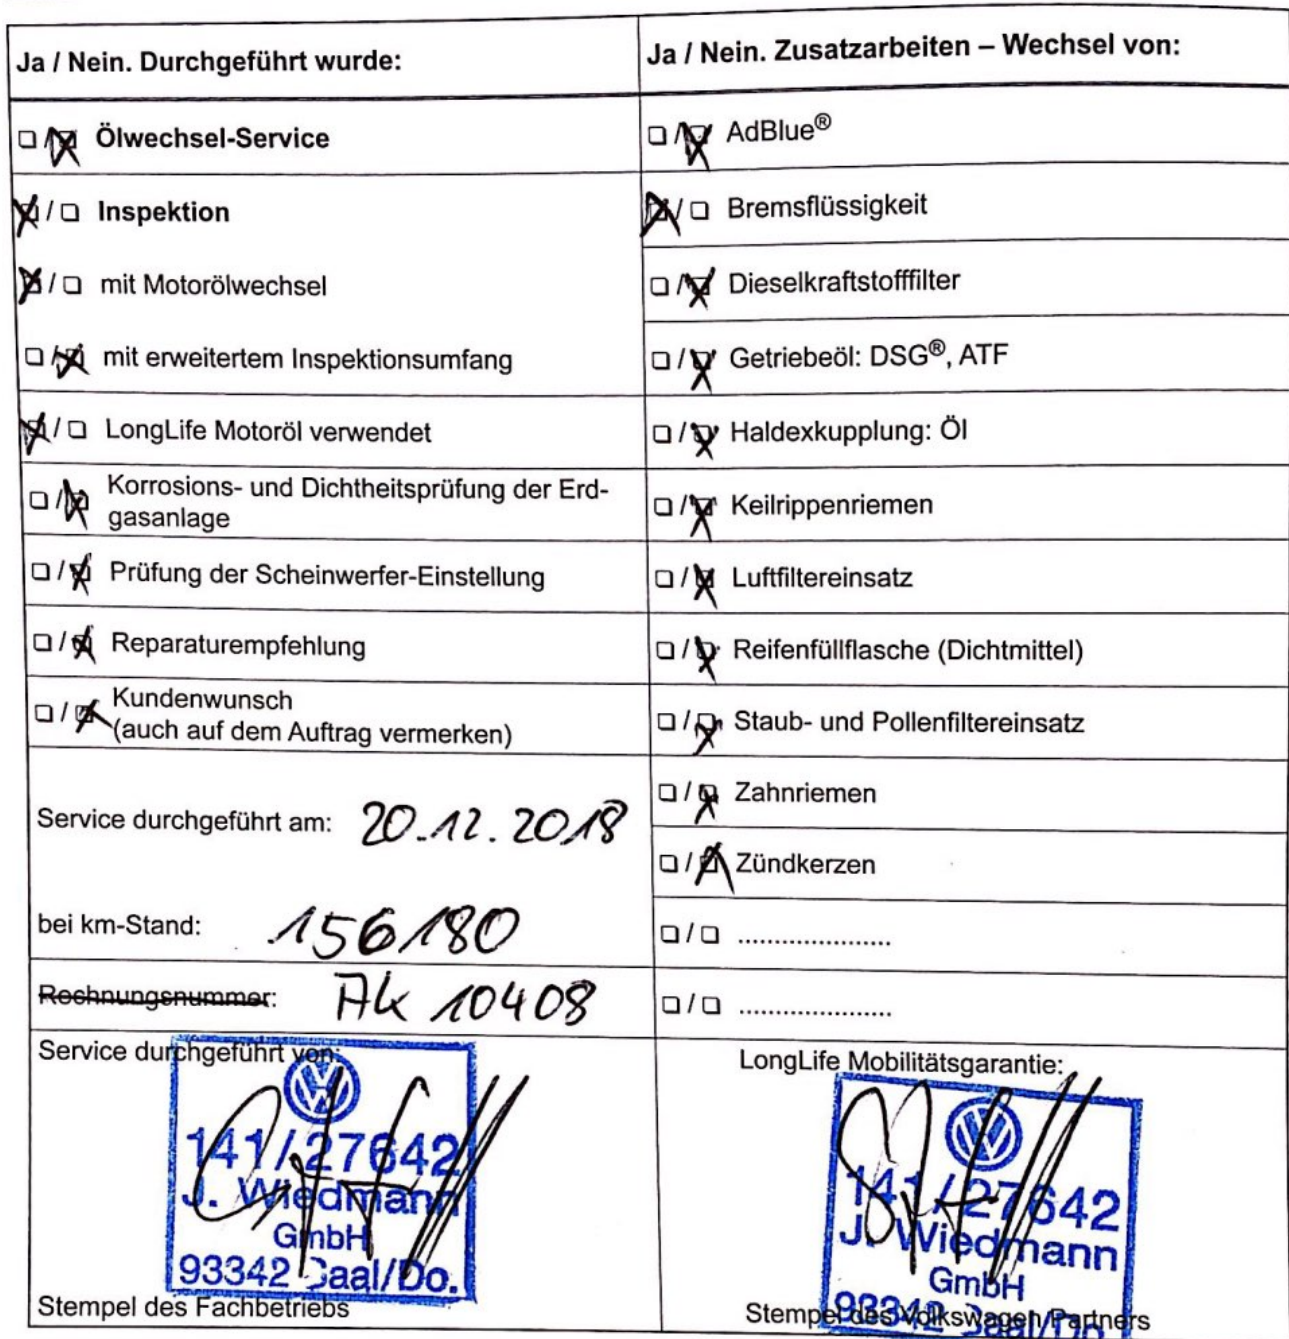 Ja / Nein. Durchgeführt wurde:
☐ / ☒ Ölwechsel-Service
☒ / ☐ Inspektion
☒ / ☐ mit Motorölwechsel
☐ / ☒ mit erweitertem Inspektionsumfang
☒ / ☐ LongLife Motoröl verwendet
☐ / ☒ Korrosions- und Dichtheitsprüfung der Erd-
gasanlage
☐ / ☒ Prüfung der Scheinwerfer-Einstellung
☐ / ☒ Reparaturempfehlung
☐ / ☒ Kundenwunsch
(auch auf dem Auftrag vermerken)
Service durchgeführt am: 20.12.2018
bei km-Stand: 156180
Rechnungsnummer: AK 10408
Service durchgeführt von:
141/27642
J. Wiedmann
GmbH
93342 Saal/Do.
Stempel des Fachbetriebs
Ja / Nein. Zusatzarbeiten – Wechsel von:
☐ / ☒ AdBlue®
☒ / ☐ Bremsflüssigkeit
☐ / ☒ Dieselkraftstofffilter
☐ / ☒ Getriebeöl: DSG®, ATF
☐ / ☒ Haldexkupplung: Öl
☐ / ☒ Keilrippenriemen
☐ / ☒ Luftfiltereinsatz
☐ / ☒ Reifenfüllflasche (Dichtmittel)
☐ / ☒ Staub- und Pollenfiltereinsatz
☐ / ☒ Zahnriemen
☐ / ☒ Zündkerzen
☐ / ☐ .....................
☐ / ☐ .....................
LongLife Mobilitätsgarantie:
141/27642
J. Wiedmann
GmbH
93342 Saal/Do.
Stempel des Volkswagen Partners